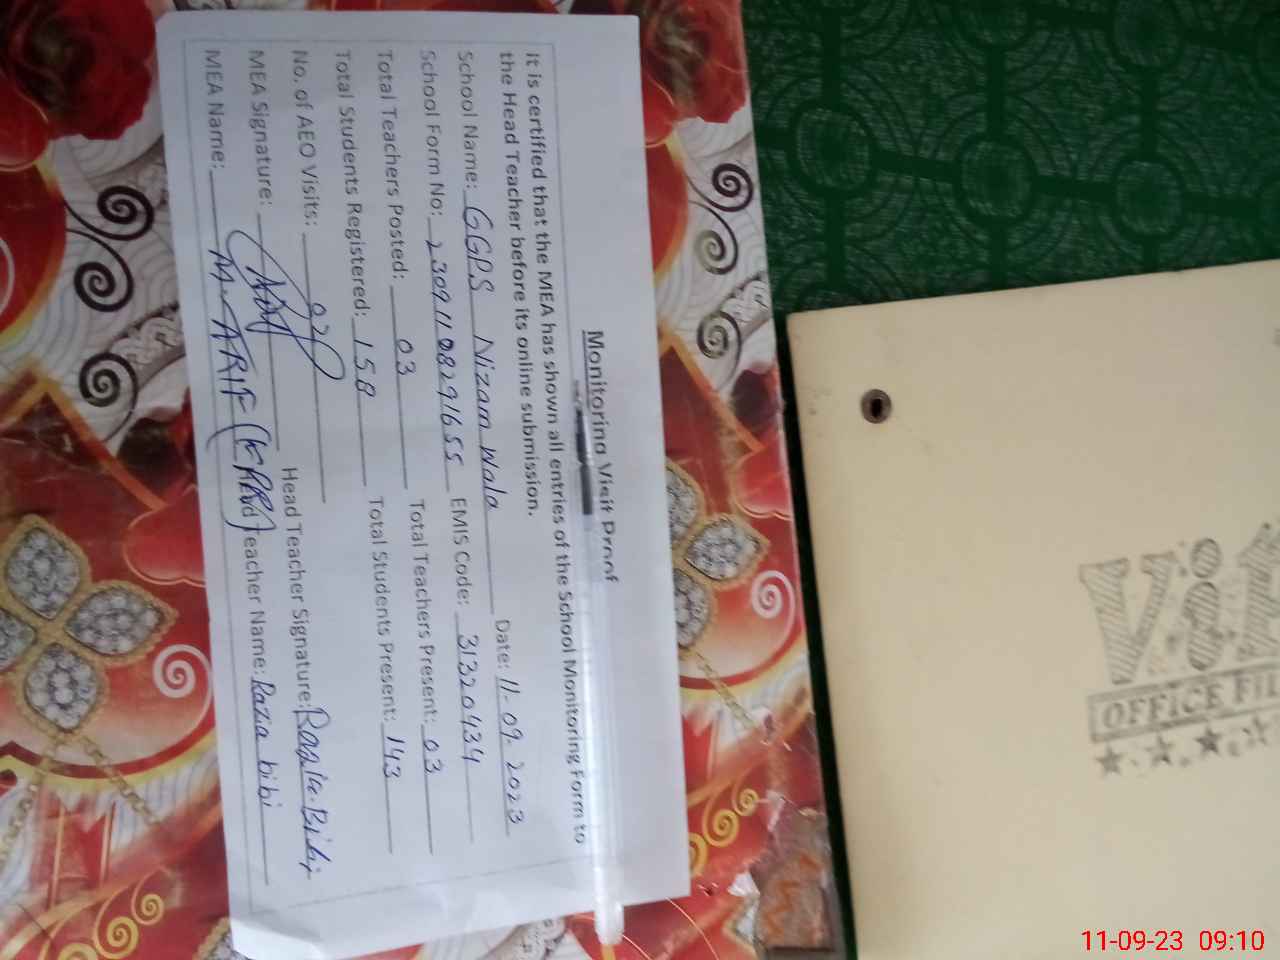 Monitoring Visit Proof
It is certified that the MEA has shown all entries of the School Monitoring Form to
the Head Teacher before its online submission.
School Name: GGPS Nizam Wala Date: 11-09-2023
School Form No: 23091108291655 EMIS Code: 31320434
Total Teachers Posted: 03 Total Teachers Present: 03
Total Students Registered: 158 Total Students Present: 143
No. of AEO Visits: 02
MEA Signature: Head Teacher Signature: Razia Bibi
MEA Name: M. ARIF Head Teacher Name: Razia bibi
OFFICE FIL
11-09-23 09:10